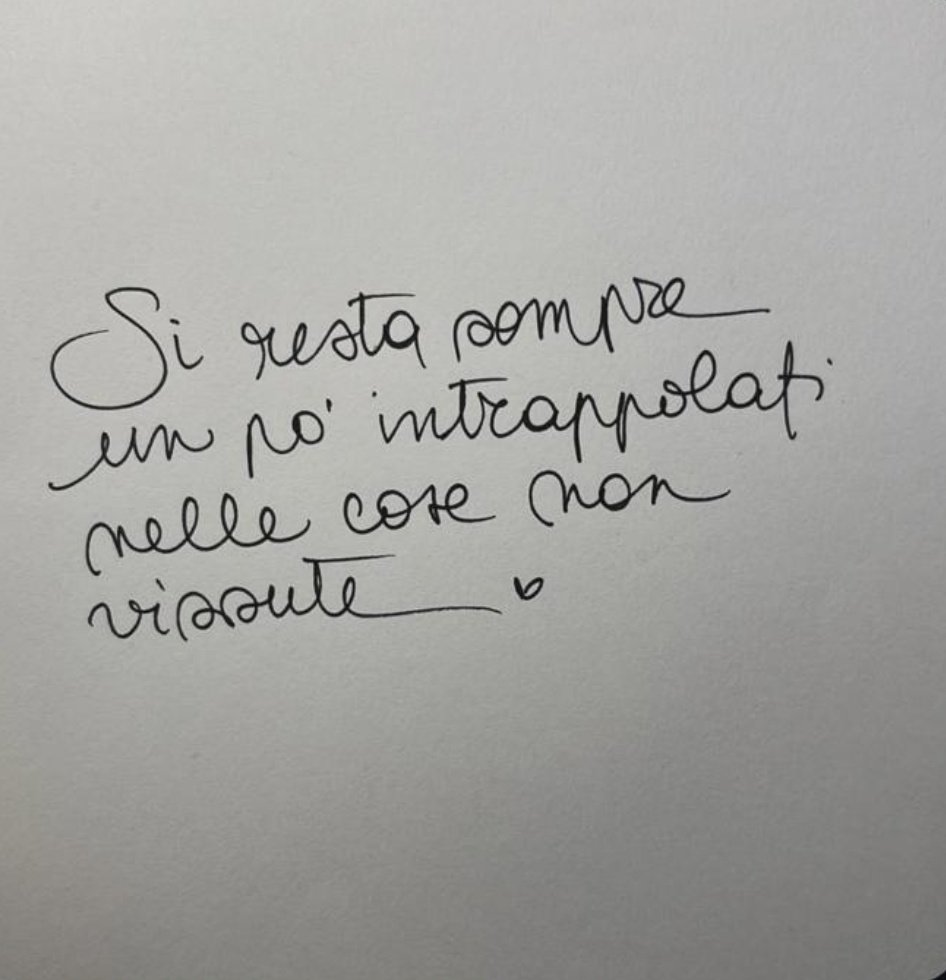 Si resta sempre
un po' intrappolati
nelle cose non
vissute